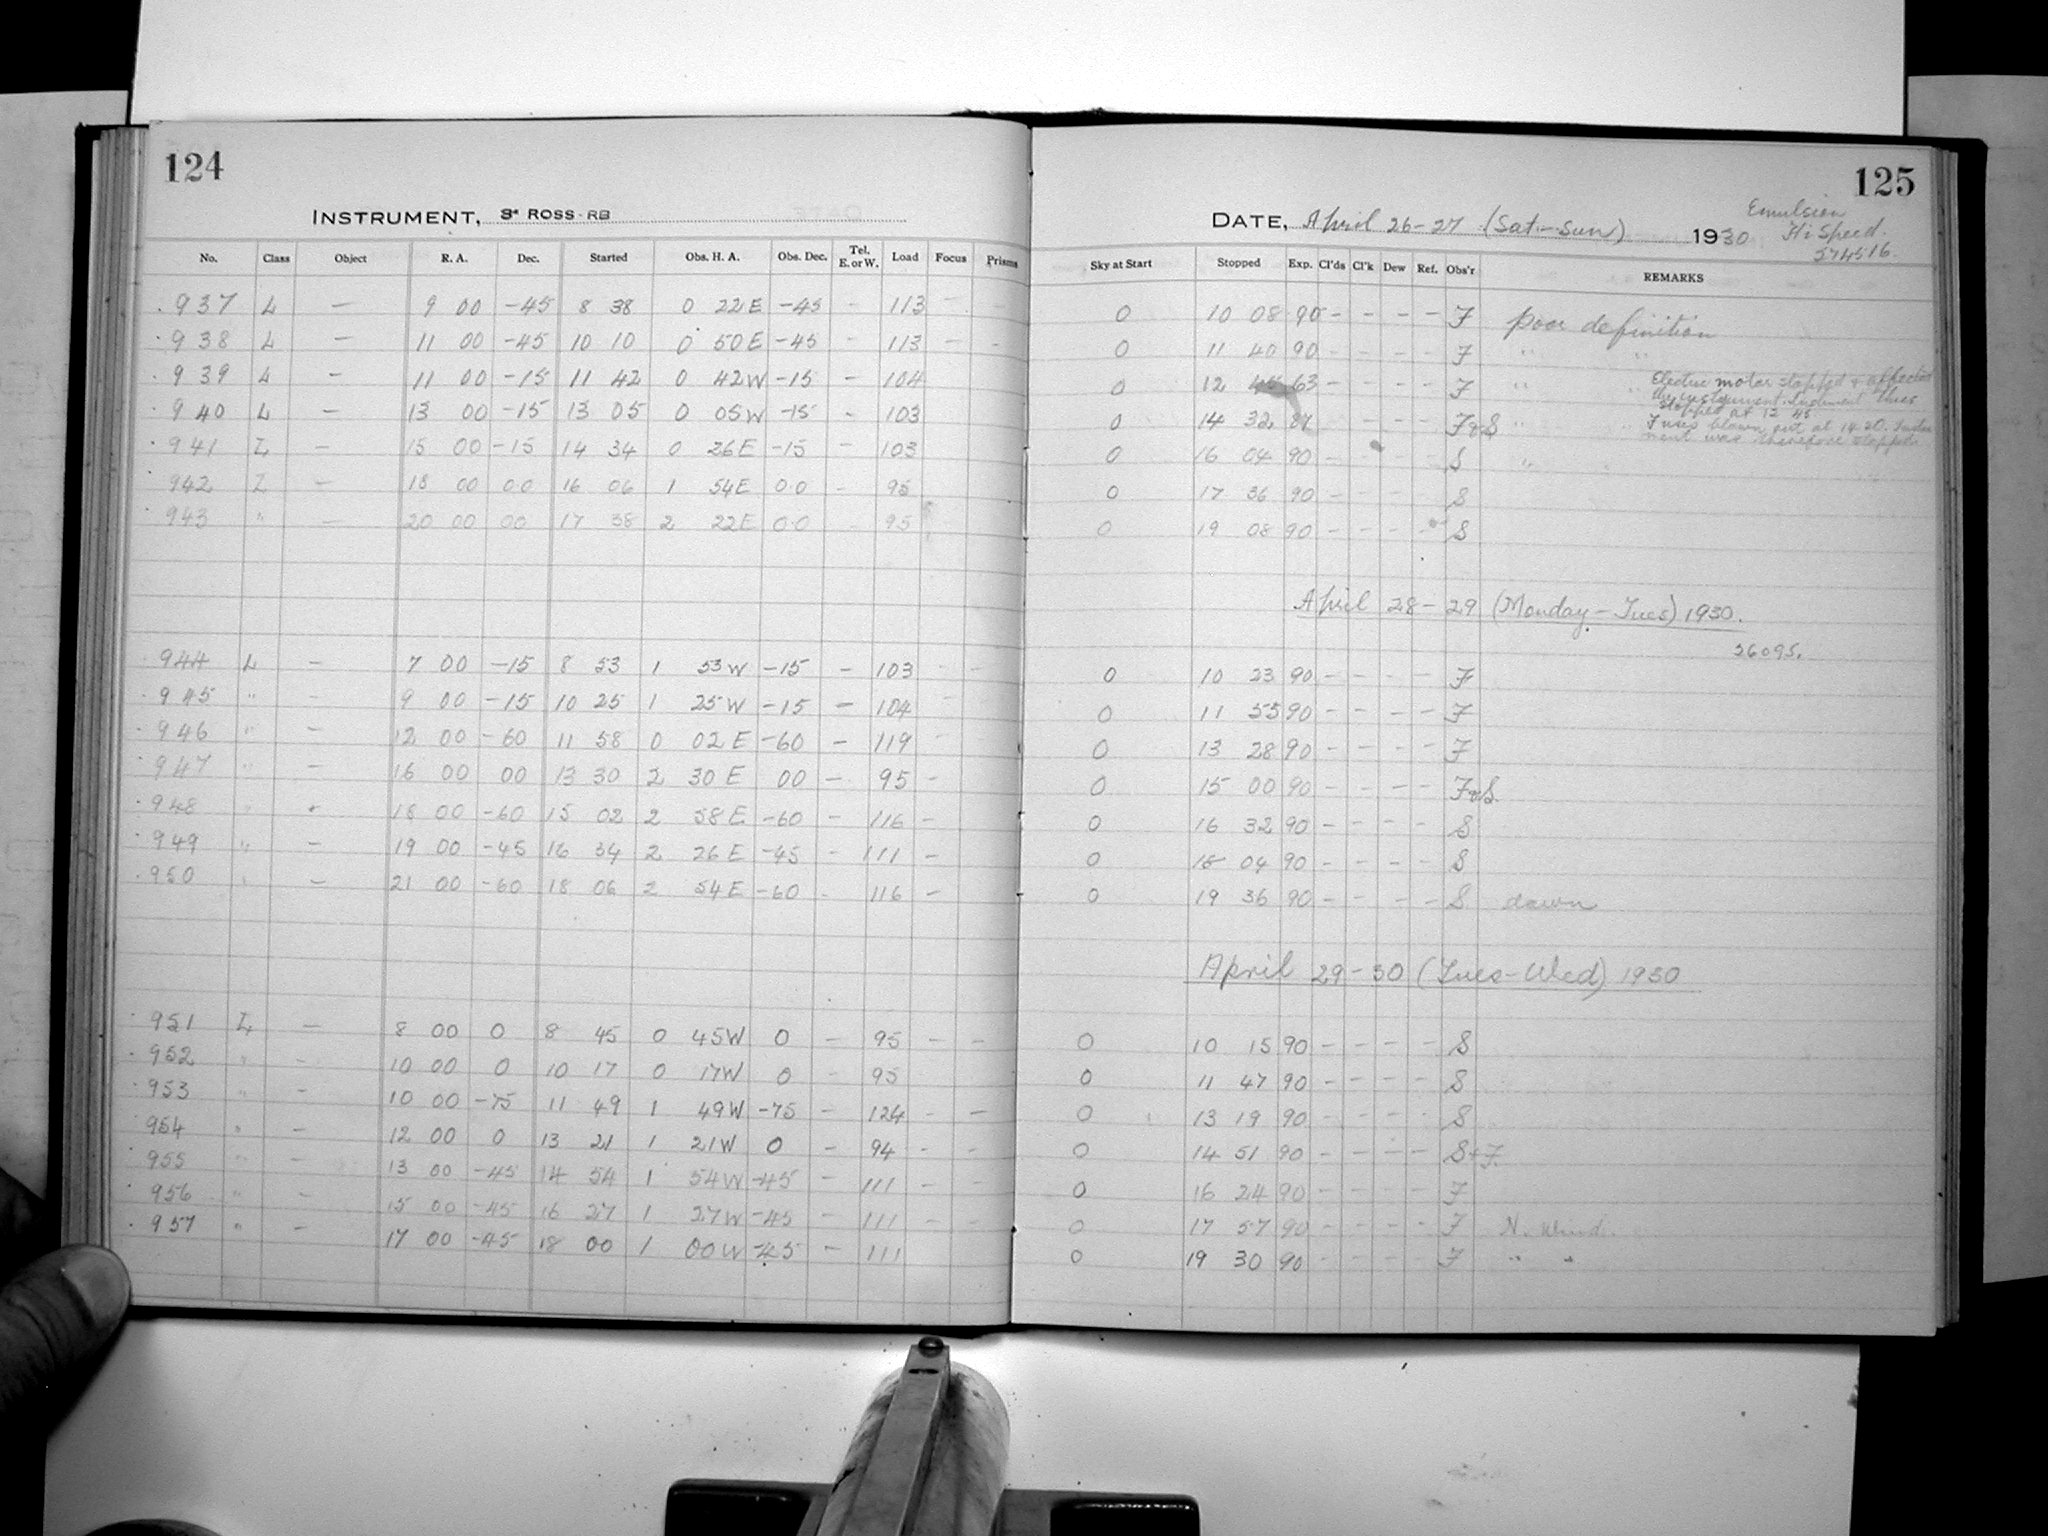 124
INSTRUMENT, 3" ROSS-RB
No. Class Object R. A. Dec. Started Obs. H. A. Obs. Dec. Tel. E. or W. Load Focus Prisms
937 L — 9 00 -45 8 38 0 22E -45 - 113 - -
938 L — 11 00 -45 10 10 0 50E -45 - 113 - -
939 L — 11 00 -15 11 42 0 42W -15 - 104
940 L — 13 00 -15 13 05 0 05W -15 - 103
941 L — 15 00 -15 14 34 0 26E -15 - 103
942 L — 18 00 00 16 06 1 54E 00 - 95
943 " — 20 00 00 17 38 2 22E 00 - 95
944 L — 7 00 -15 8 53 1 53W -15 - 103 - -
945 " — 9 00 -15 10 25 1 25W -15 - 104 -
946 " — 12 00 -60 11 58 0 02E -60 - 119 -
947 " — 16 00 00 13 30 2 30E 00 - 95 -
948 " - 18 00 -60 15 02 2 58E -60 - 116 -
949 " — 19 00 -45 16 34 2 26E -45 - 111 -
950 " — 21 00 -60 18 06 2 54E -60 - 116 -
951 L — 8 00 0 8 45 0 45W 0 - 95 - -
952 " — 10 00 0 10 17 0 17W 0 - 95
953 " — 10 00 -75 11 49 1 49W -75 - 124 - -
954 " — 12 00 0 13 21 1 21W 0 - 94 - -
955 " — 13 00 -45 14 54 1 54W -45 - 111 - -
956 " — 15 00 -45 16 27 1 27W -45 - 111 - -
957 " — 17 00 -45 18 00 1 00W -45 - 111
125
DATE, April 26-27 (Sat-Sun) 1930
Emulsion
Hi Speed.
574516.
Sky at Start Stopped Exp. Cl'ds Cl'k Dew Ref. Obs'r REMARKS
0 10 08 90 - - - - F poor definition
0 11 40 90 - - - - F " "
0 12 45 63 - - - - F " " Electric motor stopped & affected
the instrument. Instrument thus
stopped at 12 45
0 14 32 87 - - - - F&S " " Fuses blown out at 14 20. Instru
ment was therefore stopped
0 16 04 90 - - - - S " "
0 17 36 90 - - - - S
0 19 08 90 - - - - S
April 28-29 (Monday-Tues) 1930.
26095.
0 10 23 90 - - - - F
0 11 55 90 - - - - F
0 13 28 90 - - - - F
0 15 00 90 - - - - F&S.
0 16 32 90 - - - - S
0 18 04 90 - - - - S
0 19 36 90 - - - - S dawn
April 29-30 (Tues-Wed) 1930
0 10 15 90 - - - - S
0 11 47 90 - - - - S
0 13 19 90 - - - - S
0 14 51 90 - - - - S+F.
0 16 24 90 - - - - F
0 17 57 90 - - - - F N. Wind.
0 19 30 90 - - - - F " "